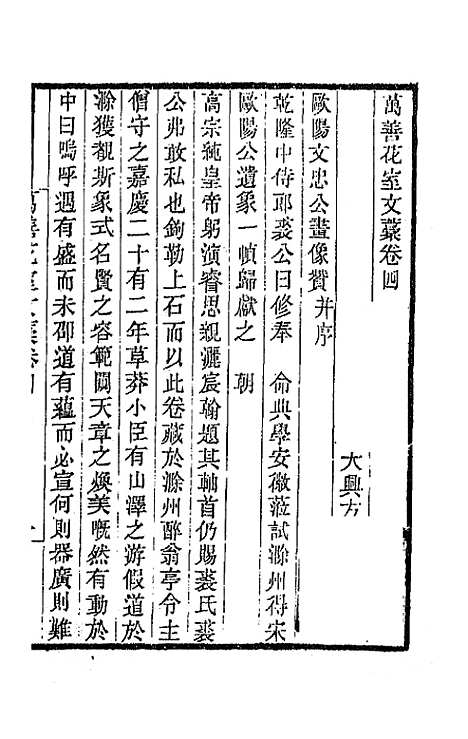 萬善花室文藳卷四
大興方
歐陽文忠公畫像贊并序
乾隆中侍郎裘公曰修奉　命典學安徽蒞試滁州得宋
歐陽公遺象一幀歸獻之　朝
高宗純皇帝躬演睿思親灑宸翰題其軸首仍賜裘氏裘
公弗敢私也鉤勒上石而以此卷藏於滁州醉翁亭令主
僧守之嘉慶二十有二年草莽小臣有山澤之游假道於
滁獲覩斯象式名賢之容範闚天章之煥美嘅然有動於
中曰嗚呼遇有盛而未卲道有蘊而必宣何則器廣則難